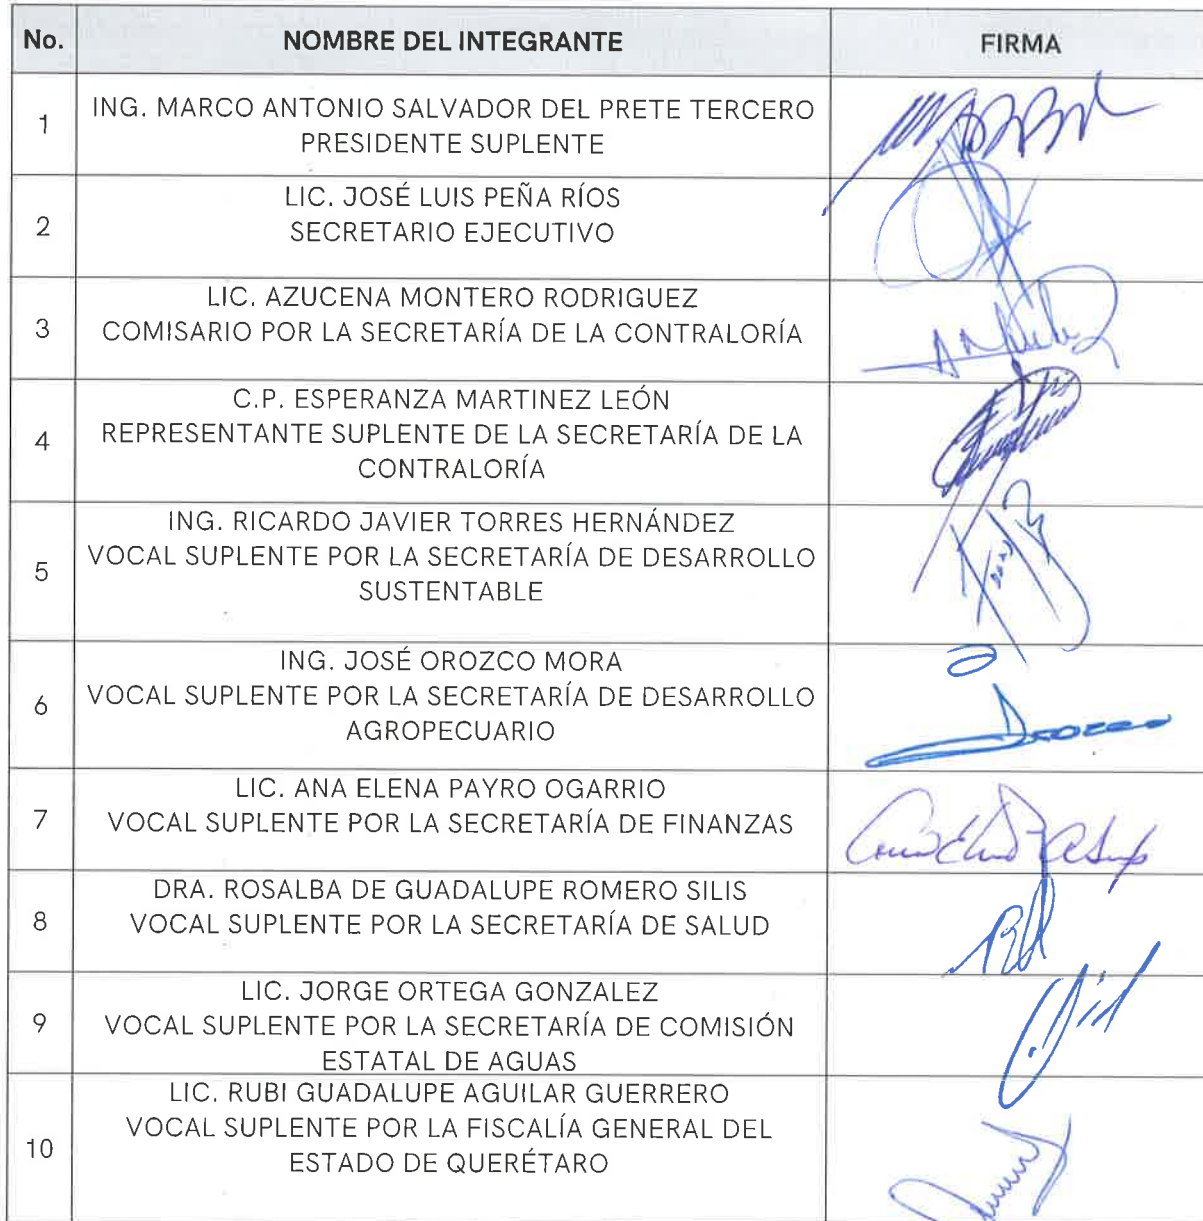 No. NOMBRE DEL INTEGRANTE FIRMA
1 ING. MARCO ANTONIO SALVADOR DEL PRETE TERCERO
PRESIDENTE SUPLENTE
2 LIC. JOSÉ LUIS PEÑA RÍOS
SECRETARIO EJECUTIVO
3 LIC. AZUCENA MONTERO RODRIGUEZ
COMISARIO POR LA SECRETARÍA DE LA CONTRALORÍA
4 C.P. ESPERANZA MARTINEZ LEÓN
REPRESENTANTE SUPLENTE DE LA SECRETARÍA DE LA
CONTRALORÍA
5 ING. RICARDO JAVIER TORRES HERNÁNDEZ
VOCAL SUPLENTE POR LA SECRETARÍA DE DESARROLLO
SUSTENTABLE
6 ING. JOSÉ OROZCO MORA
VOCAL SUPLENTE POR LA SECRETARÍA DE DESARROLLO
AGROPECUARIO
Orozco
7 LIC. ANA ELENA PAYRO OGARRIO
VOCAL SUPLENTE POR LA SECRETARÍA DE FINANZAS
8 DRA. ROSALBA DE GUADALUPE ROMERO SILIS
VOCAL SUPLENTE POR LA SECRETARÍA DE SALUD
9 LIC. JORGE ORTEGA GONZALEZ
VOCAL SUPLENTE POR LA SECRETARÍA DE COMISIÓN
ESTATAL DE AGUAS
10 LIC. RUBI GUADALUPE AGUILAR GUERRERO
VOCAL SUPLENTE POR LA FISCALÍA GENERAL DEL
ESTADO DE QUERÉTARO